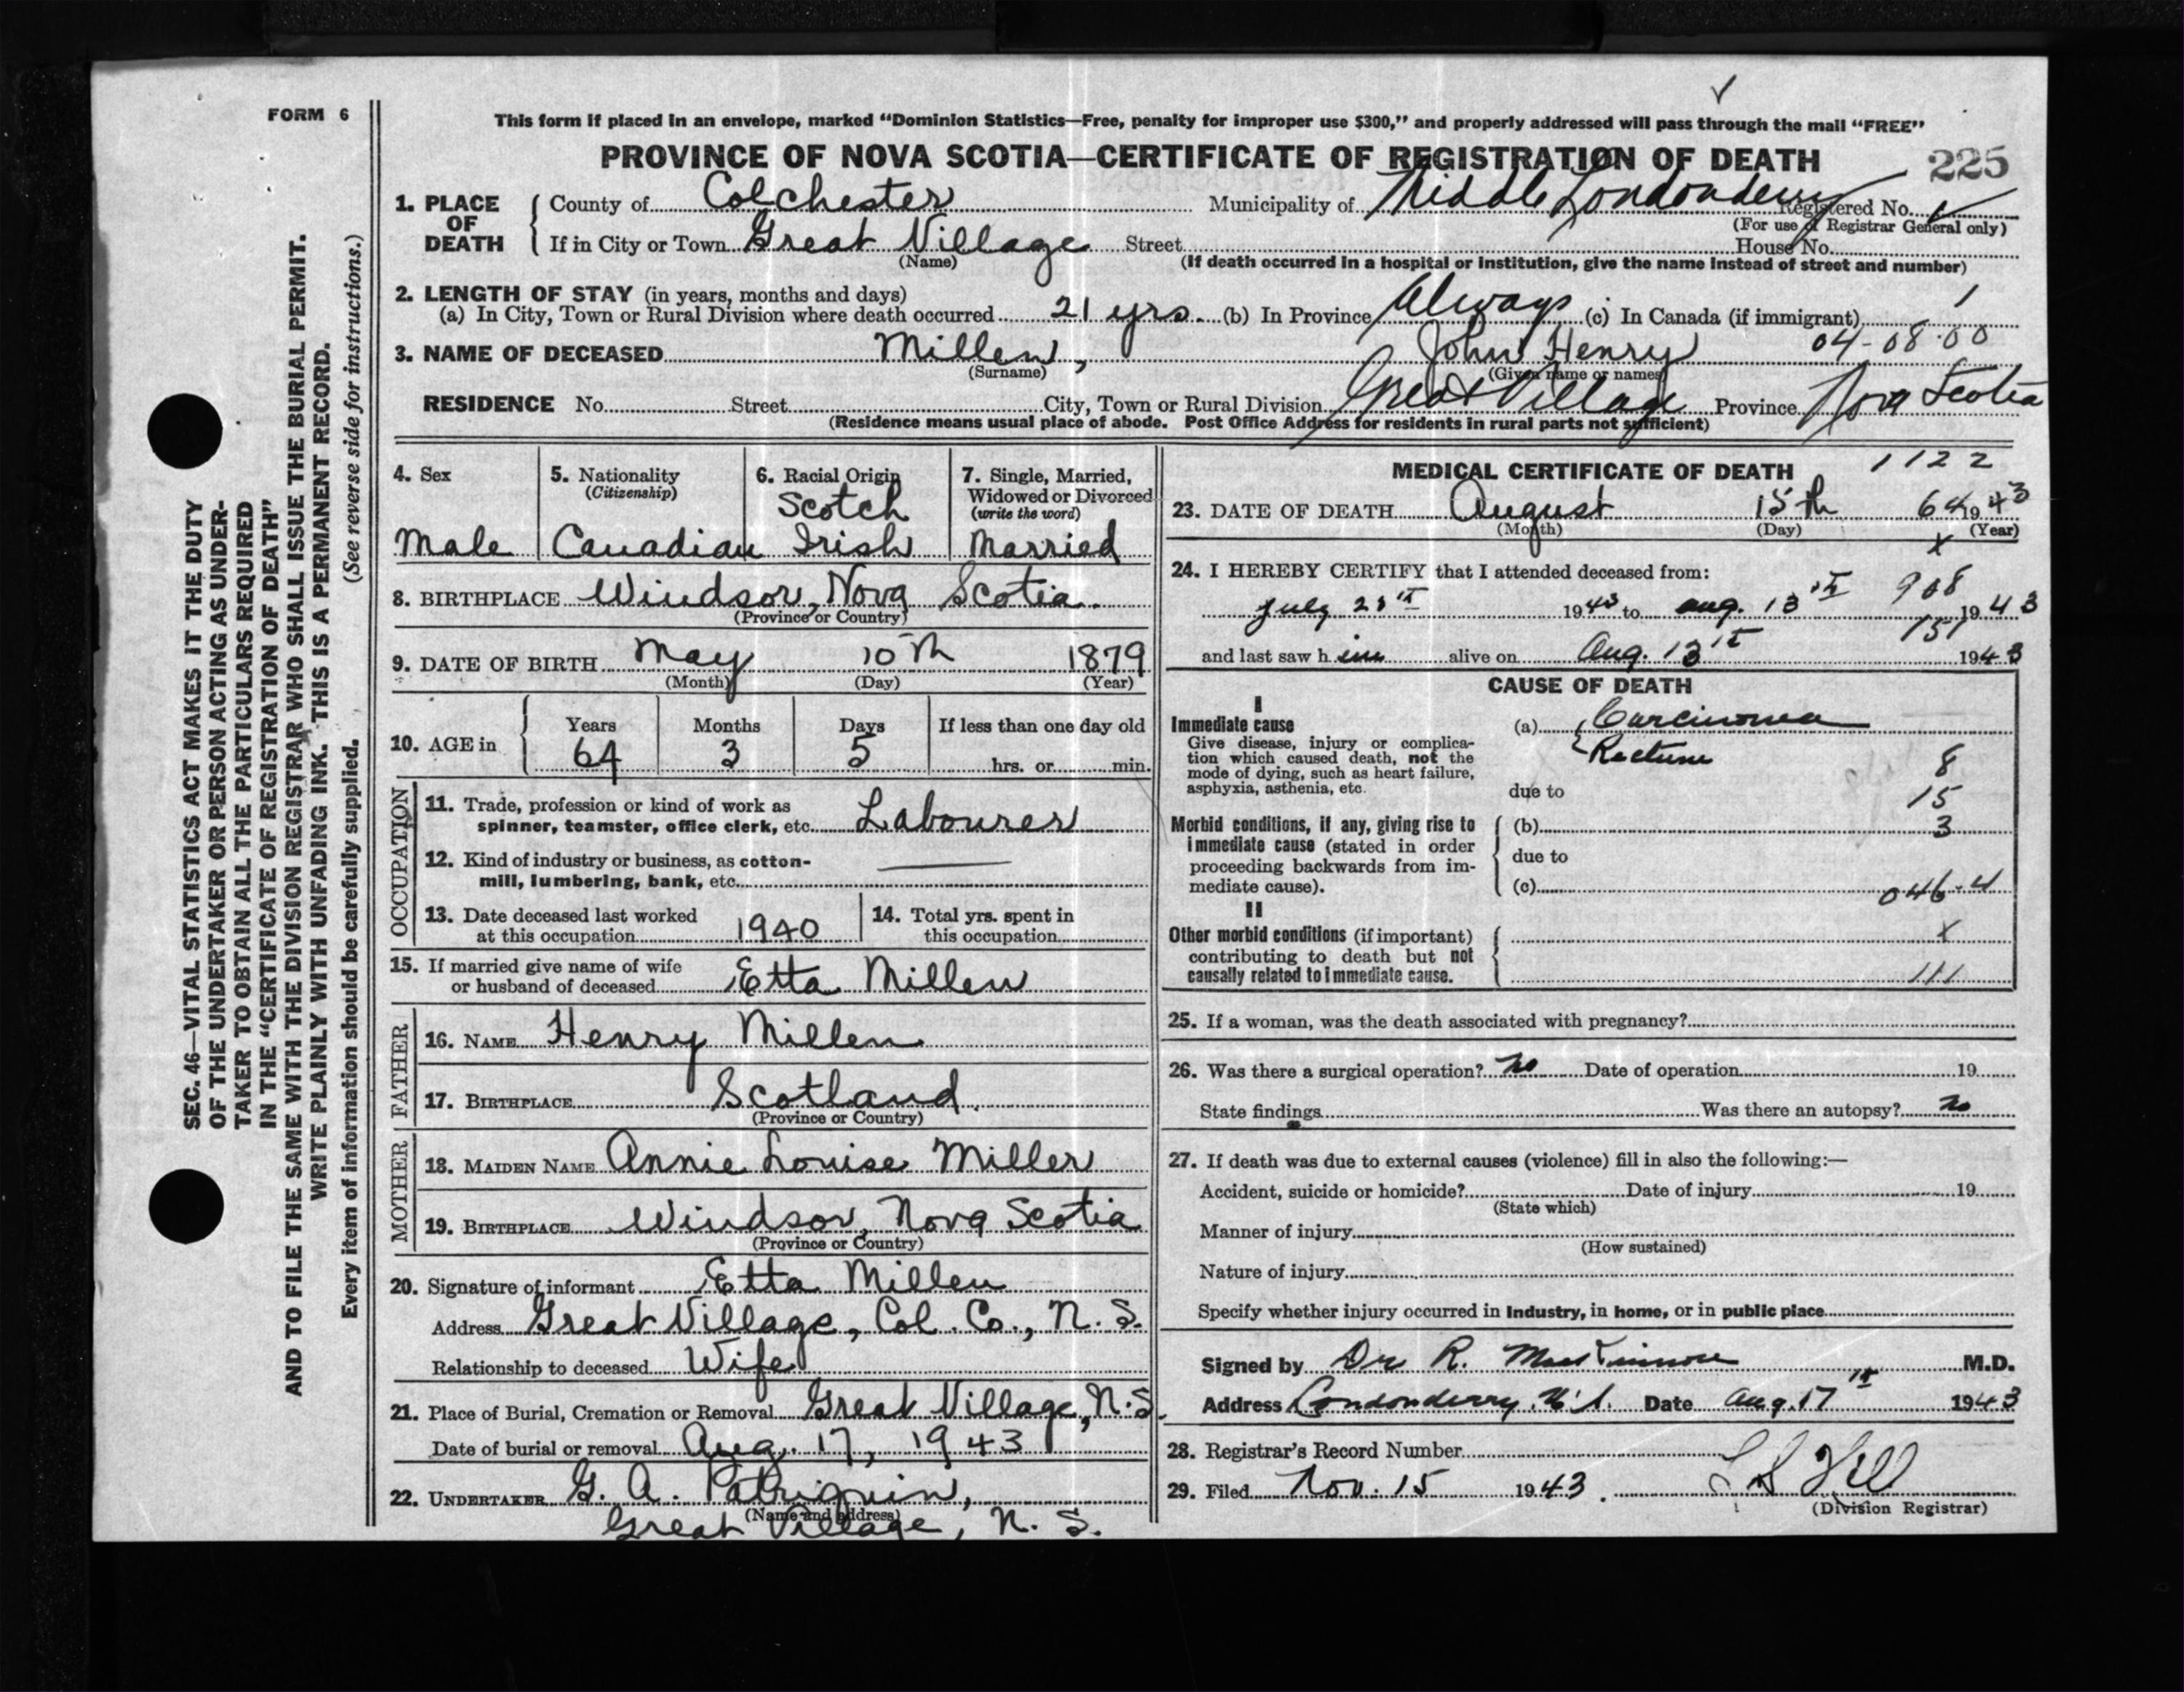 FORM 6
This form if placed in an envelope, marked “Dominion Statistics—Free, penalty for improper use $300,” and properly addressed will pass through the mail “FREE”
PROVINCE OF NOVA SCOTIA—CERTIFICATE OF REGISTRATION OF DEATH
225
1. PLACE OF DEATH
County of Colchester Municipality of Middle Londonderry Registered No.
(For use of Registrar General only)
If in City or Town Great Village Street House No.
(Name)
(If death occurred in a hospital or institution, give the name instead of street and number)
2. LENGTH OF STAY (in years, months and days)
(a) In City, Town or Rural Division where death occurred 21 yrs. (b) In Province Always (c) In Canada (if immigrant) 1
04-08.00
3. NAME OF DECEASED Millen, John Henry
(Surname) (Given name or names)
RESIDENCE No. Street City, Town or Rural Division Great Village Province Nova Scotia
(Residence means usual place of abode. Post Office Address for residents in rural parts not sufficient)
4. Sex
Male
5. Nationality
(Citizenship)
Canadian
6. Racial Origin
Scotch
Irish
7. Single, Married,
Widowed or Divorced
(write the word)
Married
8. BIRTHPLACE Windsor, Nova Scotia.
(Province or Country)
9. DATE OF BIRTH May 10th 1879
(Month) (Day) (Year)
10. AGE in
Years Months Days If less than one day old
64 3 5 hrs. or min.
OCCUPATION
11. Trade, profession or kind of work as
spinner, teamster, office clerk, etc. Labourer
12. Kind of industry or business, as cotton-
mill, lumbering, bank, etc.
13. Date deceased last worked
at this occupation 1940
14. Total yrs. spent in
this occupation
15. If married give name of wife
or husband of deceased Etta Millen
FATHER
16. NAME Henry Millen
17. BIRTHPLACE Scotland.
(Province or Country)
MOTHER
18. MAIDEN NAME Annie Louise Miller
19. BIRTHPLACE Windsor, Nova Scotia
(Province or Country)
20. Signature of informant Etta Millen
Address Great Village, Col. Co., N. S.
Relationship to deceased Wife
21. Place of Burial, Cremation or Removal Great Village, N.S.
Date of burial or removal Aug. 17, 1943
22. UNDERTAKER G. A. Patriquin,
(Name and address)
Great Village, N. S.
MEDICAL CERTIFICATE OF DEATH
1122
23. DATE OF DEATH August 15th 64 1943
(Month) (Day) (Year)
x
24. I HEREBY CERTIFY that I attended deceased from:
July 28th 1943 to Aug. 13th 1943
908
151
and last saw h im alive on Aug. 13th 1943
CAUSE OF DEATH
I
Immediate cause
Give disease, injury or complica-
tion which caused death, not the
mode of dying, such as heart failure,
asphyxia, asthenia, etc.
(a) Carcinoma
Rectum
8
due to
15
Morbid conditions, if any, giving rise to
immediate cause (stated in order
proceeding backwards from im-
mediate cause).
(b) 3
due to
(c) 046.4
II
Other morbid conditions (if important)
contributing to death but not
causally related to immediate cause.
x
111
25. If a woman, was the death associated with pregnancy?
26. Was there a surgical operation? No Date of operation 19
State findings Was there an autopsy? No
27. If death was due to external causes (violence) fill in also the following:—
Accident, suicide or homicide? Date of injury 19
(State which)
Manner of injury
(How sustained)
Nature of injury
Specify whether injury occurred in Industry, in home, or in public place
Signed by Dr R. MacKinnon M.D.
Address Londonderry. N.S. Date Aug. 17th 1943
28. Registrar’s Record Number
29. Filed Nov. 15 1943. Hill
(Division Registrar)
SEC. 46—VITAL STATISTICS ACT MAKES IT THE DUTY
OF THE UNDERTAKER OR PERSON ACTING AS UNDER-
TAKER TO OBTAIN ALL THE PARTICULARS REQUIRED
IN THE “CERTIFICATE OF REGISTRATION OF DEATH”
AND TO FILE THE SAME WITH THE DIVISION REGISTRAR WHO SHALL ISSUE THE BURIAL PERMIT.
WRITE PLAINLY WITH UNFADING INK. THIS IS A PERMANENT RECORD.
Every item of information should be carefully supplied. (See reverse side for instructions.)